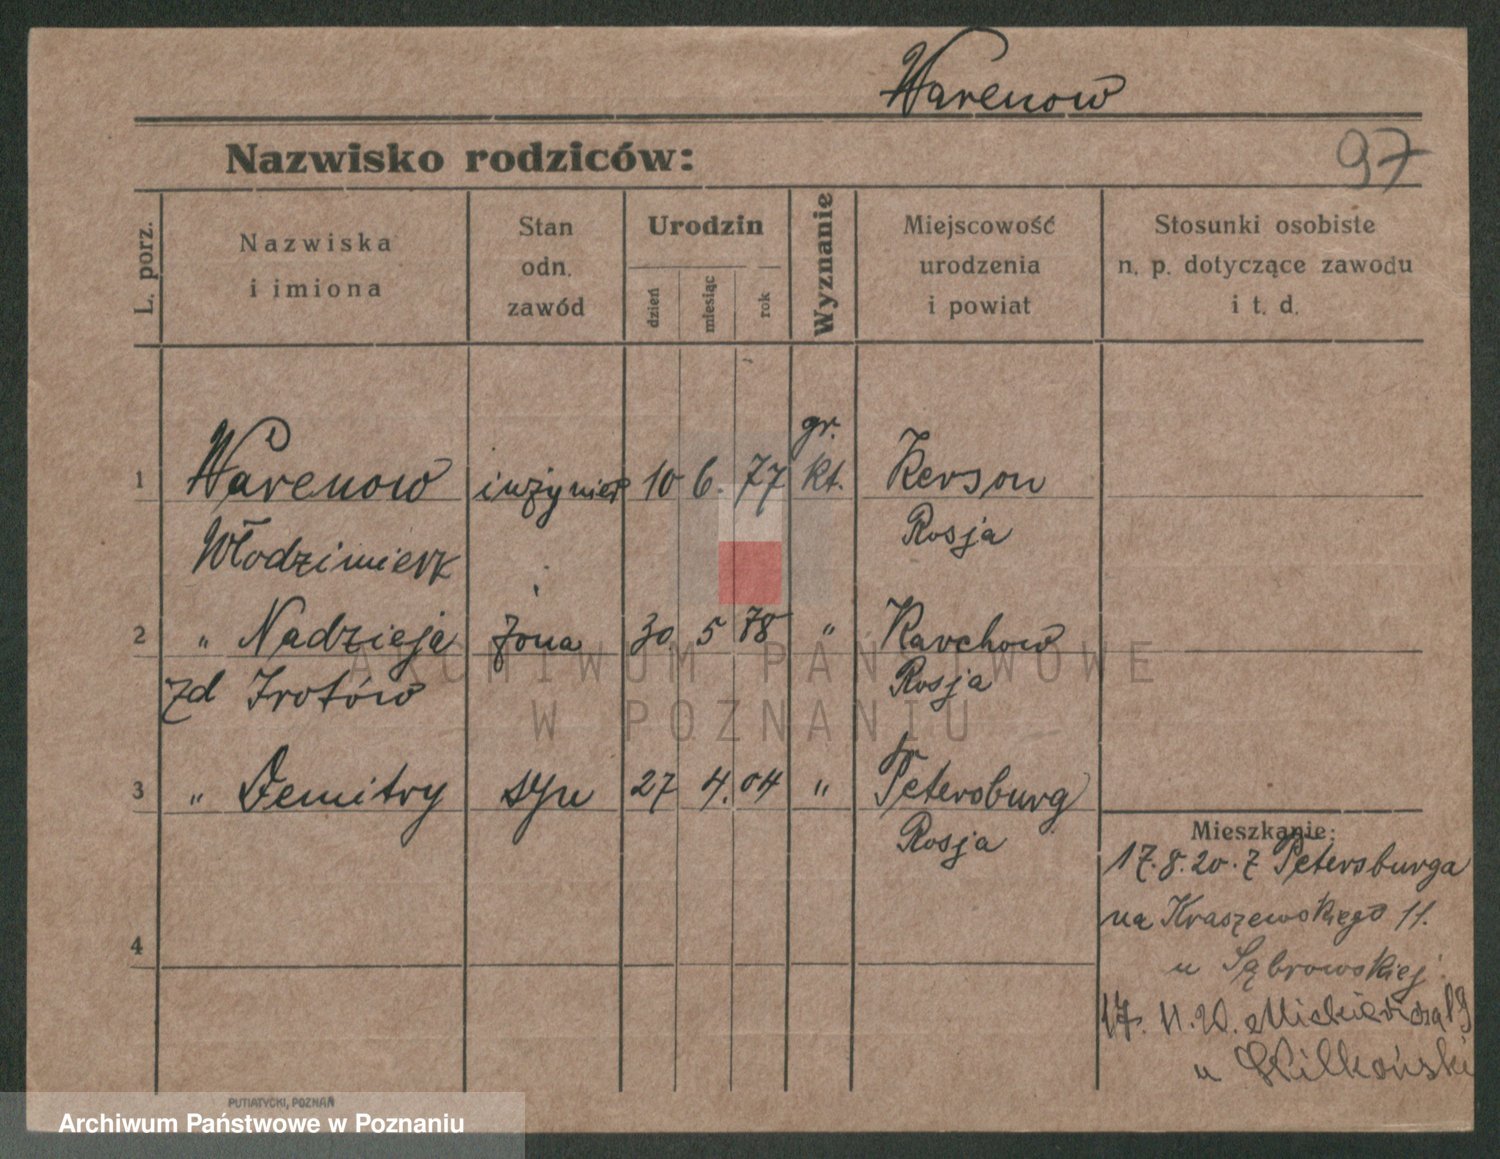 Warenow
Nazwisko rodziców:
97
L. porz.
Nazwiska
i imiona
Stan
odn.
zawód
Urodzin
dzień
miesiąc
rok
Wyznanie
Miejscowość
urodzenia
i powiat
Stosunki osobiste
n. p. dotyczące zawodu
i t. d.
gr.
1 Warenow inżynier 10 6. 77 kt. Kerson
Włodzimierz Rosja
2 " Nadzieja żona 30. 5 78 " Karchow
zd Irotów Rosja
3 " Demitry syn 27 4. 04 " Petersburg
Rosja
Mieszkanie:
17.8.20. z Petersburga
na Kraszewskiego 11.
u Sąbrowskiej
17. 11. 20. Mickiewicza 19
u Wilkoński
4
ARCHIWUM PAŃSTWOWE
W POZNANIU
PUTIATYCKI, POZNAŃ
Archiwum Państwowe w Poznaniu